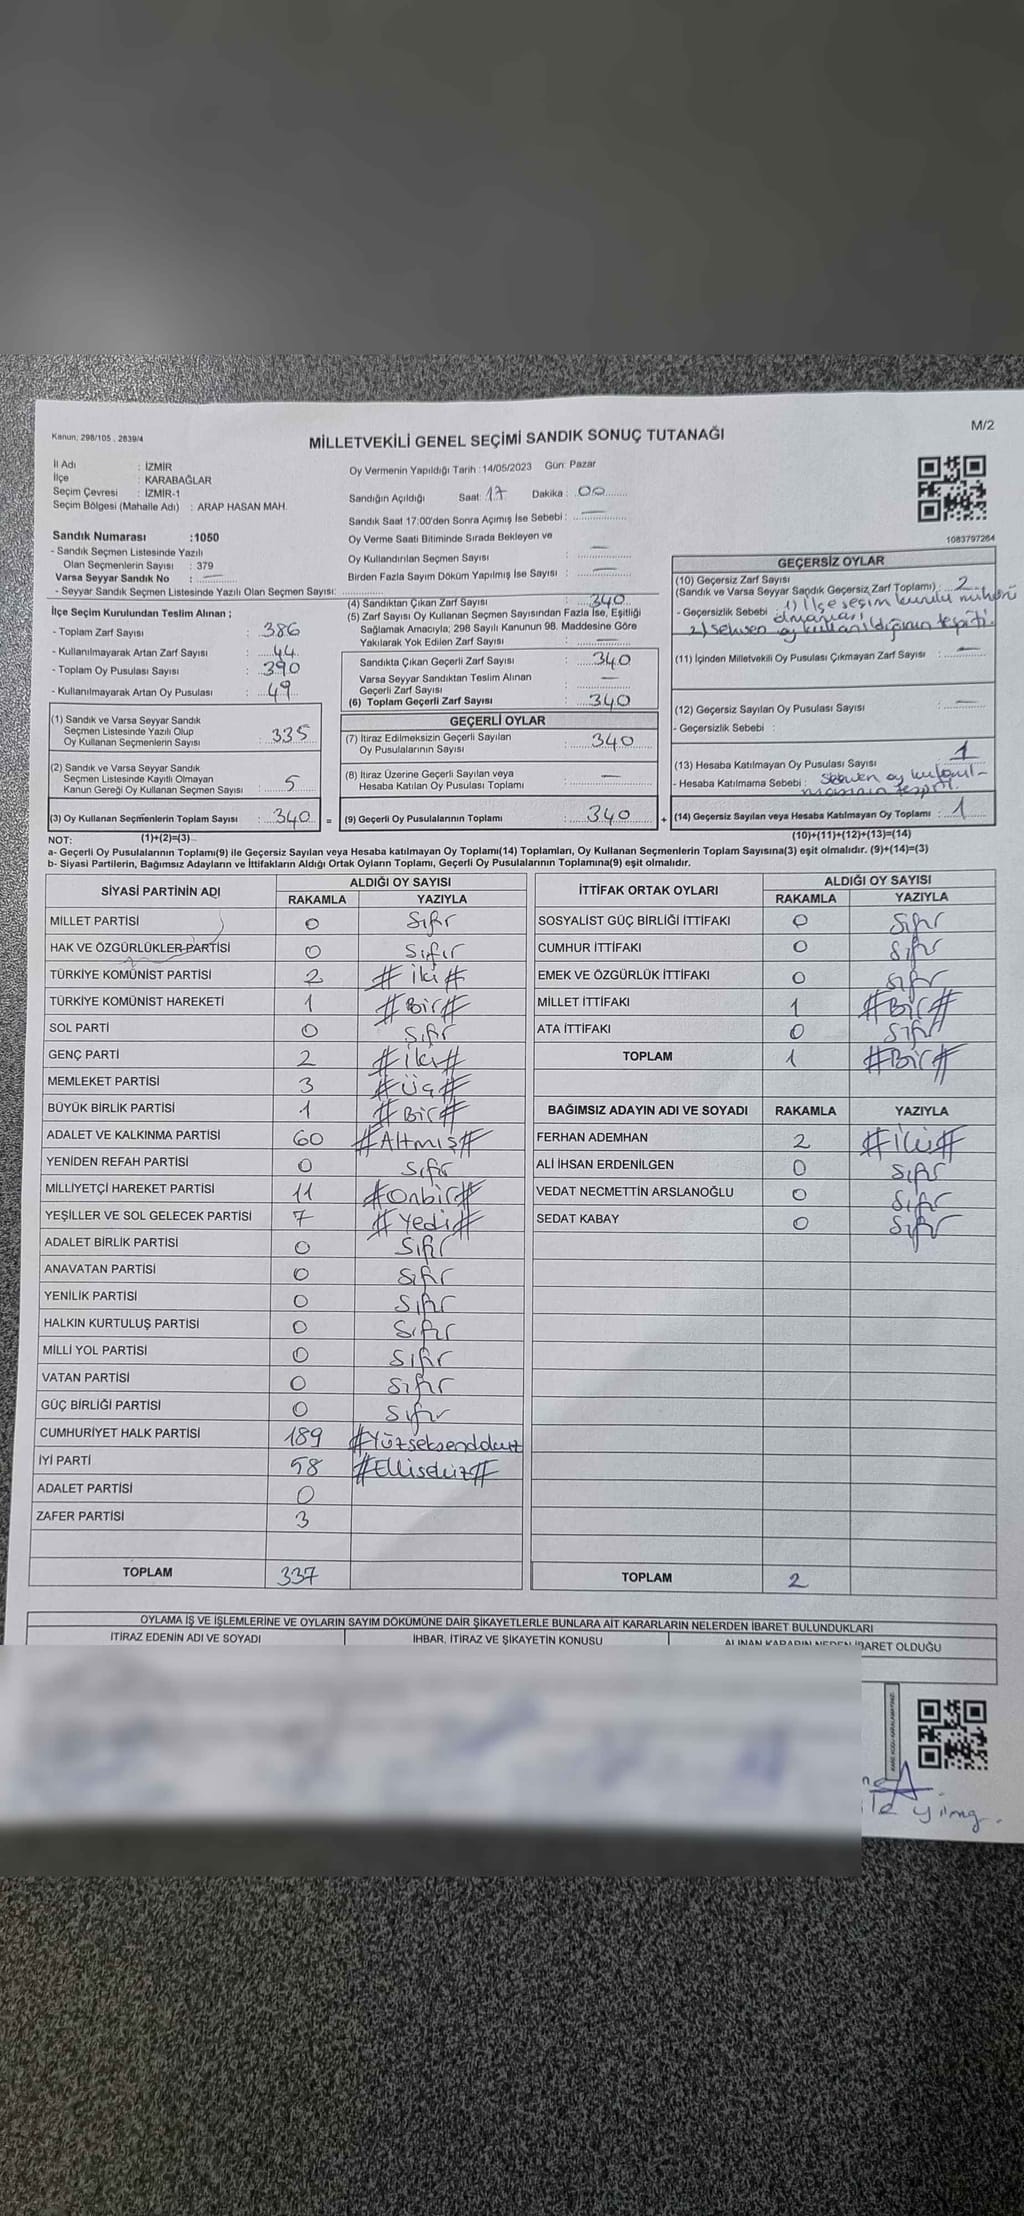 Kanun: 298/105 , 2839/4
M/2
MİLLETVEKİLİ GENEL SEÇİMİ SANDIK SONUÇ TUTANAĞI
İl Adı : İZMİR
İlçe : KARABAĞLAR
Seçim Çevresi : İZMİR-1
Seçim Bölgesi (Mahalle Adı) : ARAP HASAN MAH.
Sandık Numarası :1050
- Sandık Seçmen Listesinde Yazılı
Olan Seçmenlerin Sayısı : 379
Varsa Seyyar Sandık No : —
- Seyyar Sandık Seçmen Listesinde Yazılı Olan Seçmen Sayısı:
Oy Vermenin Yapıldığı Tarih :14/05/2023 Gün: Pazar
Sandığın Açıldığı Saat: 17 Dakika : 00
Sandık Saat 17:00'den Sonra Açımış İse Sebebi : —
Oy Verme Saati Bitiminde Sırada Bekleyen ve
Oy Kullandırılan Seçmen Sayısı : —
Birden Fazla Sayım Döküm Yapılmış İse Sayısı : —
1083797264
İlçe Seçim Kurulundan Teslim Alınan ;
- Toplam Zarf Sayısı : 386
- Kullanılmayarak Artan Zarf Sayısı : 44
- Toplam Oy Pusulası Sayısı : 390
- Kullanılmayarak Artan Oy Pusulası : 49
(1) Sandık ve Varsa Seyyar Sandık
Seçmen Listesinde Yazılı Olup
Oy Kullanan Seçmenlerin Sayısı : 335
(2) Sandık ve Varsa Seyyar Sandık
Seçmen Listesinde Kayıtlı Olmayan
Kanun Gereği Oy Kullanan Seçmen Sayısı : 5
(3) Oy Kullanan Seçmenlerin Toplam Sayısı : 340 =
(4) Sandıktan Çıkan Zarf Sayısı : 340
(5) Zarf Sayısı Oy Kullanan Seçmen Sayısından Fazla İse, Eşitliği
Sağlamak Amacıyla; 298 Sayılı Kanunun 98. Maddesine Göre
Yakılarak Yok Edilen Zarf Sayısı : —
Sandıkta Çıkan Geçerli Zarf Sayısı : 340
Varsa Seyyar Sandıktan Teslim Alınan
Geçerli Zarf Sayısı : —
(6) Toplam Geçerli Zarf Sayısı : 340
GEÇERLİ OYLAR
(7) İtiraz Edilmeksizin Geçerli Sayılan
Oy Pusulalarının Sayısı : 340
(8) İtiraz Üzerine Geçerli Sayılan veya
Hesaba Katılan Oy Pusulası Toplamı : —
(9) Geçerli Oy Pusulalarının Toplamı : 340 +
GEÇERSİZ OYLAR
(10) Geçersiz Zarf Sayısı
(Sandık ve Varsa Seyyar Sandık Geçersiz Zarf Toplamı) : 2
- Geçersizlik Sebebi : 1) İlçe seçim kurulu mührü
olmaması
2) sehven oy kullanıldığının tespiti.
(11) İçinden Milletvekili Oy Pusulası Çıkmayan Zarf Sayısı : —
(12) Geçersiz Sayılan Oy Pusulası Sayısı : —
- Geçersizlik Sebebi :
(13) Hesaba Katılmayan Oy Pusulası Sayısı : 1
- Hesaba Katılmama Sebebi : Sehven oy kullanıl-
masının tespiti
(14) Geçersiz Sayılan veya Hesaba Katılmayan Oy Toplamı : 1
NOT: (1)+(2)=(3)
(10)+(11)+(12)+(13)=(14)
a- Geçerli Oy Pusulalarının Toplamı(9) ile Geçersiz Sayılan veya Hesaba katılmayan Oy Toplamı(14) Toplamları, Oy Kullanan Seçmenlerin Toplam Sayısına(3) eşit olmalıdır. (9)+(14)=(3)
b- Siyasi Partilerin, Bağımsız Adayların ve İttifakların Aldığı Ortak Oyların Toplamı, Geçerli Oy Pusulalarının Toplamına(9) eşit olmalıdır.
SİYASİ PARTİNİN ADI ALDIĞI OY SAYISI
RAKAMLA YAZIYLA
MİLLET PARTİSİ 0 Sıfır
HAK VE ÖZGÜRLÜKLER PARTİSİ 0 Sıfır
TÜRKİYE KOMÜNİST PARTİSİ 2 #İki#
TÜRKİYE KOMÜNİST HAREKETİ 1 #Bir#
SOL PARTİ 0 Sıfır
GENÇ PARTİ 2 #İki#
MEMLEKET PARTİSİ 3 #Üç#
BÜYÜK BİRLİK PARTİSİ 1 #Bir#
ADALET VE KALKINMA PARTİSİ 60 #Altmış#
YENİDEN REFAH PARTİSİ 0 Sıfır
MİLLİYETÇİ HAREKET PARTİSİ 11 #Onbir#
YEŞİLLER VE SOL GELECEK PARTİSİ 7 #Yedi#
ADALET BİRLİK PARTİSİ 0 Sıfır
ANAVATAN PARTİSİ 0 Sıfır
YENİLİK PARTİSİ 0 Sıfır
HALKIN KURTULUŞ PARTİSİ 0 Sıfır
MİLLİ YOL PARTİSİ 0 Sıfır
VATAN PARTİSİ 0 Sıfır
GÜÇ BİRLİĞİ PARTİSİ 0 Sıfır
CUMHURİYET HALK PARTİSİ 189
İYİ PARTİ 58
ADALET PARTİSİ 0
ZAFER PARTİSİ 3
TOPLAM 337
İTTİFAK ORTAK OYLARI ALDIĞI OY SAYISI
RAKAMLA YAZIYLA
SOSYALİST GÜÇ BİRLİĞİ İTTİFAKI 0 Sıfır
CUMHUR İTTİFAKI 0 Sıfır
EMEK VE ÖZGÜRLÜK İTTİFAKI 0 Sıfır
MİLLET İTTİFAKI 1 #Bir#
ATA İTTİFAKI 0 Sıfır
TOPLAM 1 #Bir#
BAĞIMSIZ ADAYIN ADI VE SOYADI RAKAMLA YAZIYLA
FERHAN ADEMHAN 2 #İki#
ALİ İHSAN ERDENİLGEN 0 Sıfır
VEDAT NECMETTİN ARSLANOĞLU 0 Sıfır
SEDAT KABAY 0 Sıfır
TOPLAM 2
OYLAMA İŞ VE İŞLEMLERİNE VE OYLARIN SAYIM DÖKÜMÜNE DAİR ŞİKAYETLERLE BUNLARA AİT KARARLARIN NELERDEN İBARET BULUNDUKLARI
İTİRAZ EDENİN ADI VE SOYADI İHBAR, İTİRAZ VE ŞİKAYETİN KONUSU ALINAN KARARIN NEDEN İBARET OLDUĞU